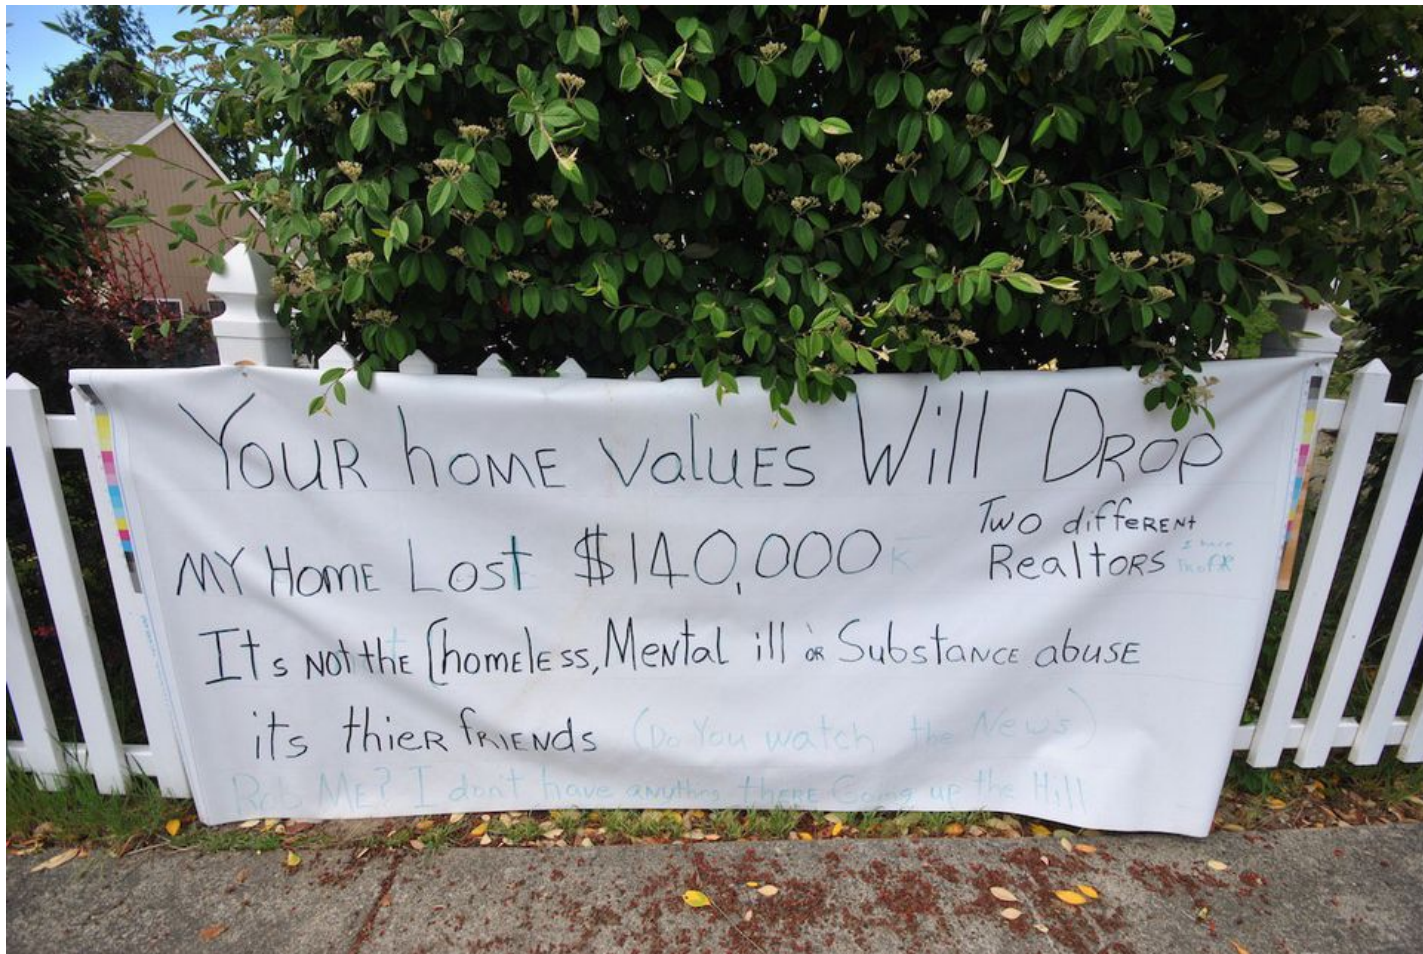 YOUR hOME ValuES Will DROP
MY HOME LOST $140,000 K
TWO diffERENt
RealTORS I have
PROOF
It s NOt the (homeless, Mental ill OR SubstANCE abuse
it's thiER fRIENds (Do You watch the News)
Rob ME? I don't have anything thERE Going up the Hill